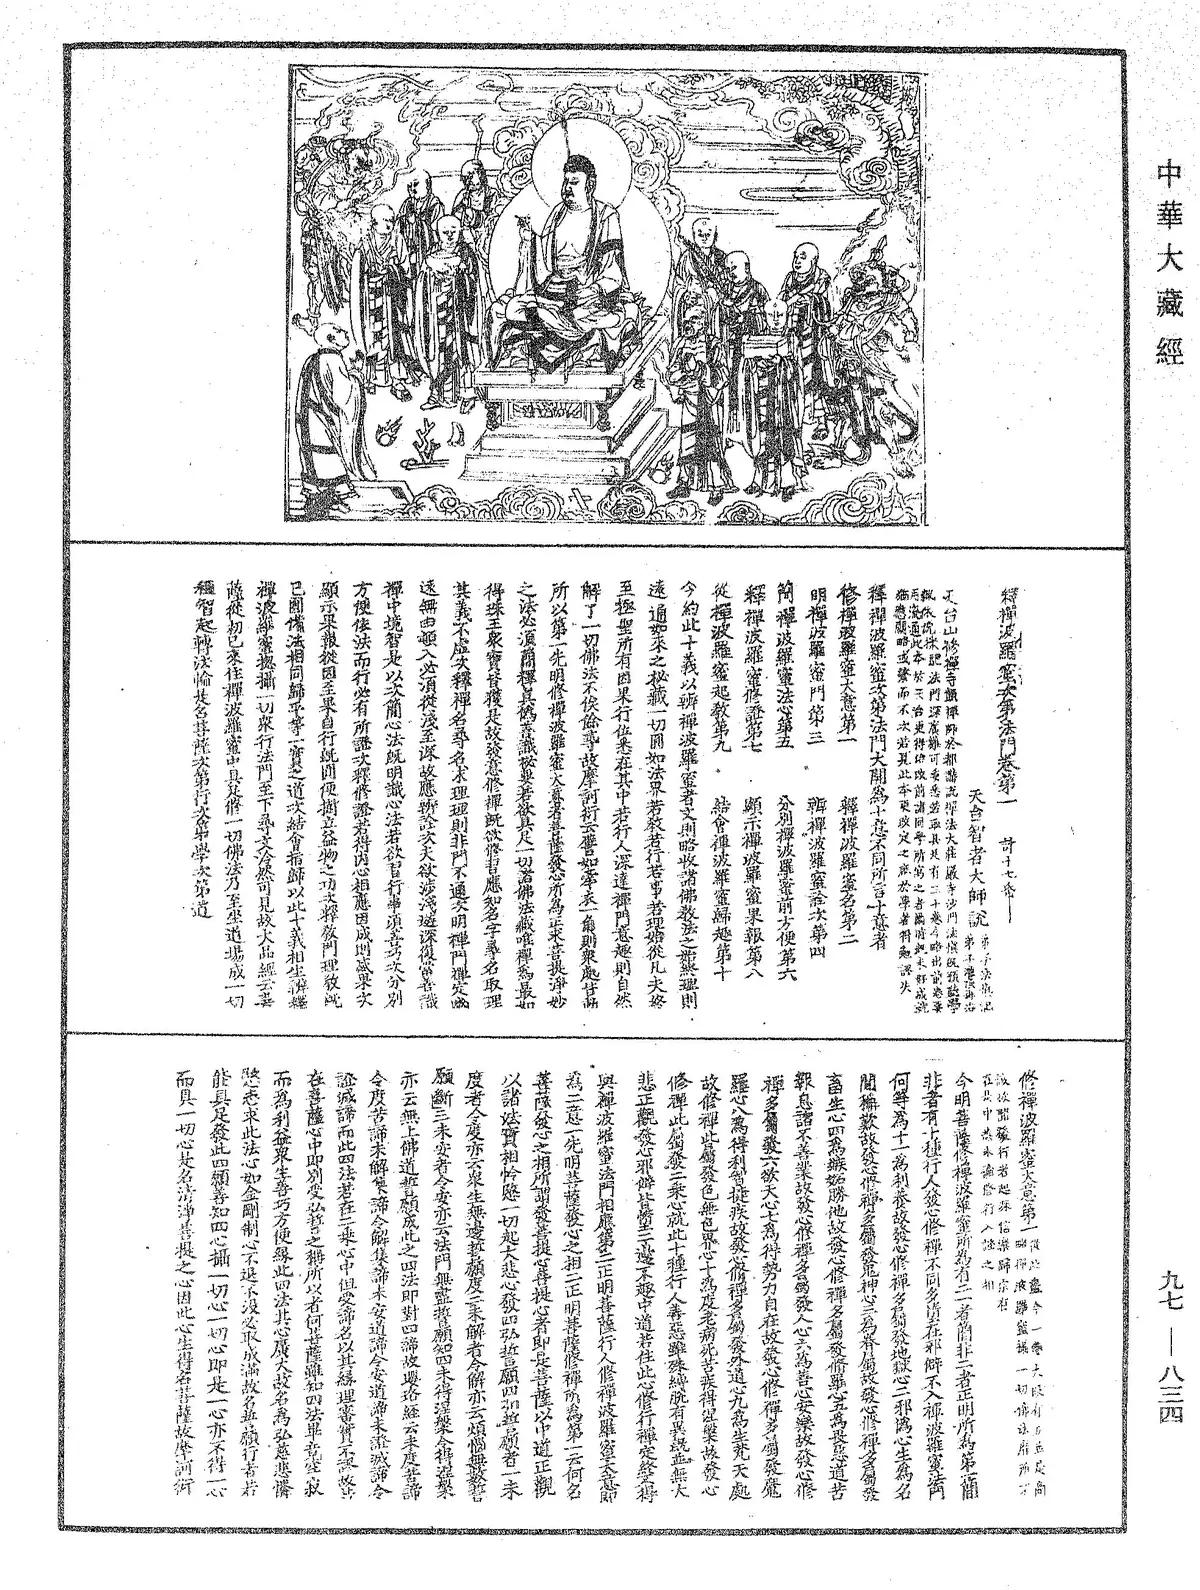 中華大藏經
釋禪波羅蜜次第法門卷第一
天台智者大師說
釋禪波羅蜜次第法門大開為十意不同所言十意者
修禪波羅蜜大意第一 釋禪波羅蜜名第二
明禪波羅蜜門第三 辨禪波羅蜜詮次第四
簡禪波羅蜜法心第五 分別禪波羅蜜前方便第六
釋禪波羅蜜修證第七 顯示禪波羅蜜果報第八
從禪波羅蜜起教第九 結會禪波羅蜜歸趣第十
今約此十義以辨禪波羅蜜者文則略收諸佛教法之始終理則
遠通如來之秘藏一切圓如法界若教若行若事若理始從凡夫終
至極聖所有因果行位悉在其中若行人深達禪門意趣則自然
解了一切佛法不俟餘尋故摩訶衍云譬如牽衣一角則眾處皆動
所以第一先明修禪波羅蜜大意者菩薩發心所為正求菩提淨妙
之法必須簡擇真偽善識秘要若欲具足一切諸佛法藏唯禪為最如
得珠玉眾寶皆獲是故發意修禪既欲修習應知名字尋名取理
其義不虛次釋禪名尋名求理理則非門不通次明禪門禪定幽
遠無由頓入必須從淺至深故應辨詮次夫欲涉淺遊深復當善識
禪中境智是以次簡心法既明識心法若欲習行事須善巧次分別
方便依法而行必有所證次釋修證若得內心相應因成則感果次
顯示果報從因至果自行既圓便樹立益物之功次釋教門理教既
已圓備法相同歸平等一實之道次結會指歸以此十義相生辨釋
禪波羅蜜總攝一切眾行法門至下尋文泠然可見故大品經云菩
薩從初已來住禪波羅蜜中具足修一切佛法乃至坐道場成一切
種智起轉法輪是名菩薩次第行次第學次第道
修禪波羅蜜大意第一
今明菩薩修禪波羅蜜所為有二一者簡非二者正明所為第一簡
非者有十種行人發心修禪不同多墮在邪僻不入禪波羅蜜法門
何等為十一為利養故發心修禪多屬發地獄心二邪偽心生為名
聞稱歎故發心修禪多屬發鬼神心三為眷屬故發心修禪多屬發
畜生心四為嫉妬勝他故發心修禪多屬發修羅心五為畏惡道苦
報息諸不善業故發心修禪多屬發人心六為善心安樂故發心修
禪多屬發六欲天心七為得勢力自在故發心修禪多屬發魔
羅心八為得利智捷疾故發心修禪多屬發外道心九為生梵天處
故修禪此屬發色無色界心十為度老病死苦疾得涅槃故發心
修禪此屬發二乘心就此十種行人善惡雖殊縛脫有異既並無大
悲正觀發心邪僻皆墮二邊不趣中道若住此心修行禪定終不得
與禪波羅蜜法門相應第二正明菩薩行人修禪波羅蜜大意即
為二意一先明菩薩發心之相二正明菩薩修禪所為第一云何名
菩薩發心之相所謂發菩提心菩提心者即是菩薩以中道正觀
以諸法實相憐愍一切起大悲心發四弘誓願四弘誓願者一未
度者令度亦云眾生無邊誓願度二未解者令解亦云煩惱無數誓
願斷三未安者令安亦云法門無盡誓願知四未得涅槃令得涅槃
亦云無上佛道誓願成此之四法即對四諦故瓔珞經云未度苦諦
令度苦諦未解集諦令解集諦未安道諦令安道諦未證滅諦令
證滅諦而此四法若在二乘心中但受諦名以其緣理審實不謬故若
在菩薩心中即別受弘誓之稱所以者何菩薩雖知四法畢竟空寂
而為利益眾生善巧方便緣此四法其心廣大故名為弘慈悲憐
愍志求此法心如金剛制心不退不沒必取成滿故名誓願行者若
能具足發此四願善知四心攝一切心一切心即是一心亦不得一心
而具一切心是名清淨菩提之心因此心生得名菩薩故摩訶衍
九七—八三四